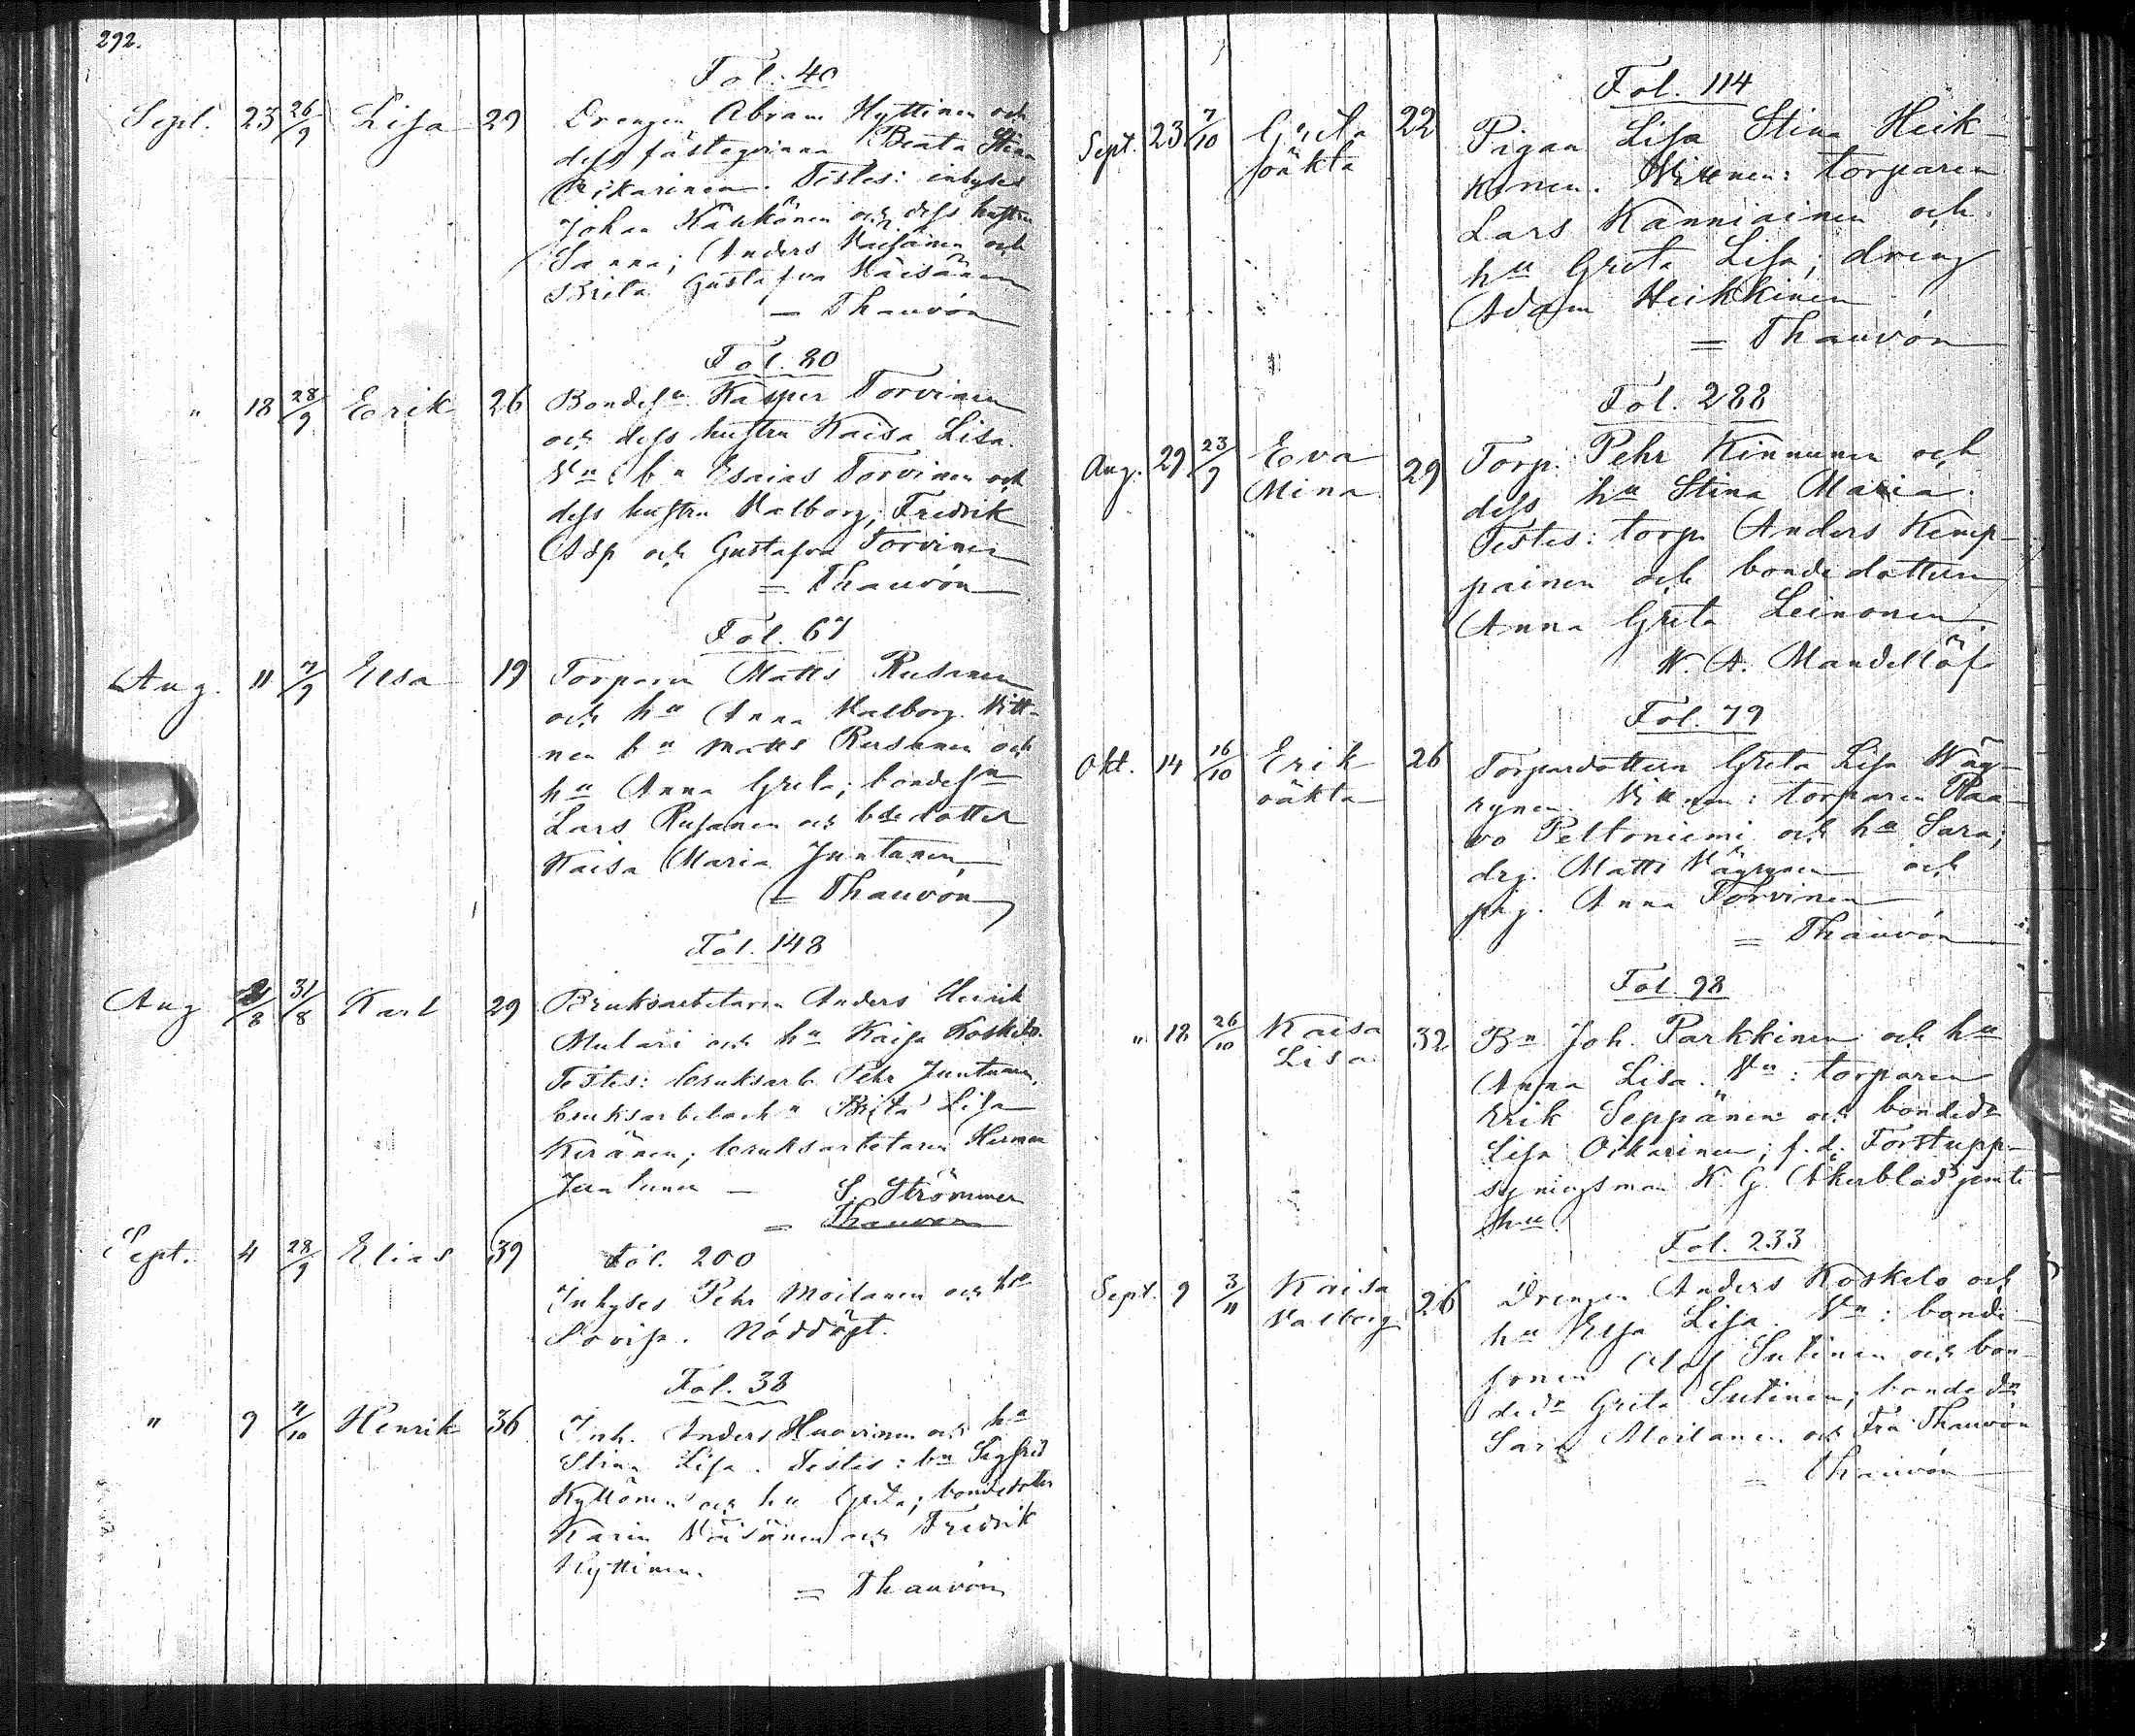 292.
Fol. 40
Sept. 23 26/9 Lisa 29 Drengen Abram Hyttinen och
dess fästeqvinna Beata Stina
Oikarinen. Testes: inhyses
Johan Kähkönen och dess hustru
Sanna; Anders Väisänen och
Brita Gustafva Väisänen
— Thauvón
Fol. 80
" 18 28/9 Erik 26 Bondesn Kasper Torvinen
och dess hustru Kaisa Lisa.
Vn: bn Esaias Torvinen och
dess hustru Valborg; Fredrik
Adf och Gustafva Torvinen
= Thauvón
Fol. 67
Aug. 11 7/9 Elsa 19 Torparen Matts Rusanen
och hu Anna Valborg. Vitt-
nen bn Matts Rusanen och
hu Anna Greta; bondesn
Lars Rusanen och bdedotter
Kaisa Maria Juntunen
= Thauvón
Fol. 148
Aug /8 31/8 Karl 29 Bruksarbetaren Anders Henrik
Mulari och hu Kaisa Koskelo.
Testes: bruksarb. Pehr Juntunen,
bruksarbetarh Brita Lisa
Keränen; bruksarbetaren Herman
Juntunen — S. Strömmer
= Thauvon
Sept. 4 28/9 Elias 39 Fol. 200
Inhyses Pehr Moilanen och hu
Lovisa. Nöddöpt.
Fol. 38
" 9 /10 Henrik 36 Inh. Anders Huovinen och hu
Stina Lisa. Testes: bn Sigfrid
Kyllönen och hu Greta; bondedotter
Karin Väisänen och Fredrik
Hyttinen.
= Thauvón
Fol. 114
Sept. 23 7/10 Greta 22 Pigan Lisa Stina Heik-
oäkta kinen. Vittnen: torparen
Lars Kanniainen och
hu Greta Lisa; dreng
Adam Heikkinen
= Thauvón
Fol. 288
Aug. 29 23/9 Eva 29 Torp. Pehr Kinnunen och
Mina dess hu Stina Maria.
Testes: torp. Anders Kemp-
painen och bondedottern
Anna Greta Leinonen.
N. A. Mandellöf
Fol. 79
Okt. 14 16/10 Erik 26 Torpardottern Greta Lisa Väy-
oäkta rynen. Vittnen: torparen Paa-
vo Peltoniemi och hu Sara;
drg. Matts Väyrynen och
pig. Anna Torvinen
= Thauvón
Fol. 98
" 18 26/10 Kaisa 32 Bn Joh. Parkkinen och hu
Lisa Anna Lisa. Vn: torparen
Erik Seppänen och bondedr
Lisa Oikarinen; f. d. Forstupp-
syningsman K. G. Åkerblad jemte
hu.
Fol. 233
Sept. 9 3/11 Kaisa 26 Drengen Anders Koskelo och
Valborg hu Elsa Lisa. Vn: bonde-
sonen Olof Sutinen och bon-
dedr Greta Sutinen; bondedr
Sara Moilanen och Fru Thauvón
= Thauvón